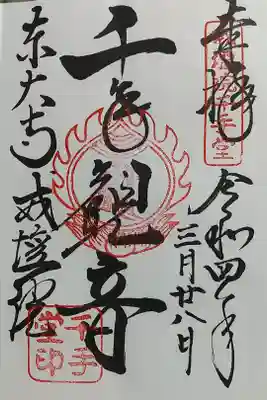 奉拝
令和四年
三月廿八日
千手
観音
東大寺
戒壇院
千手
堂印